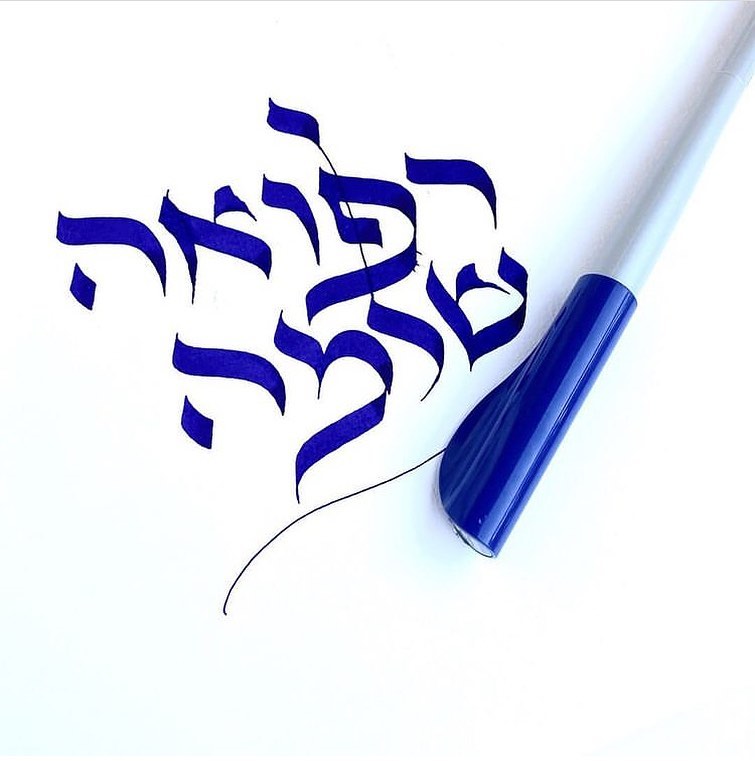 רפואה
שלמה